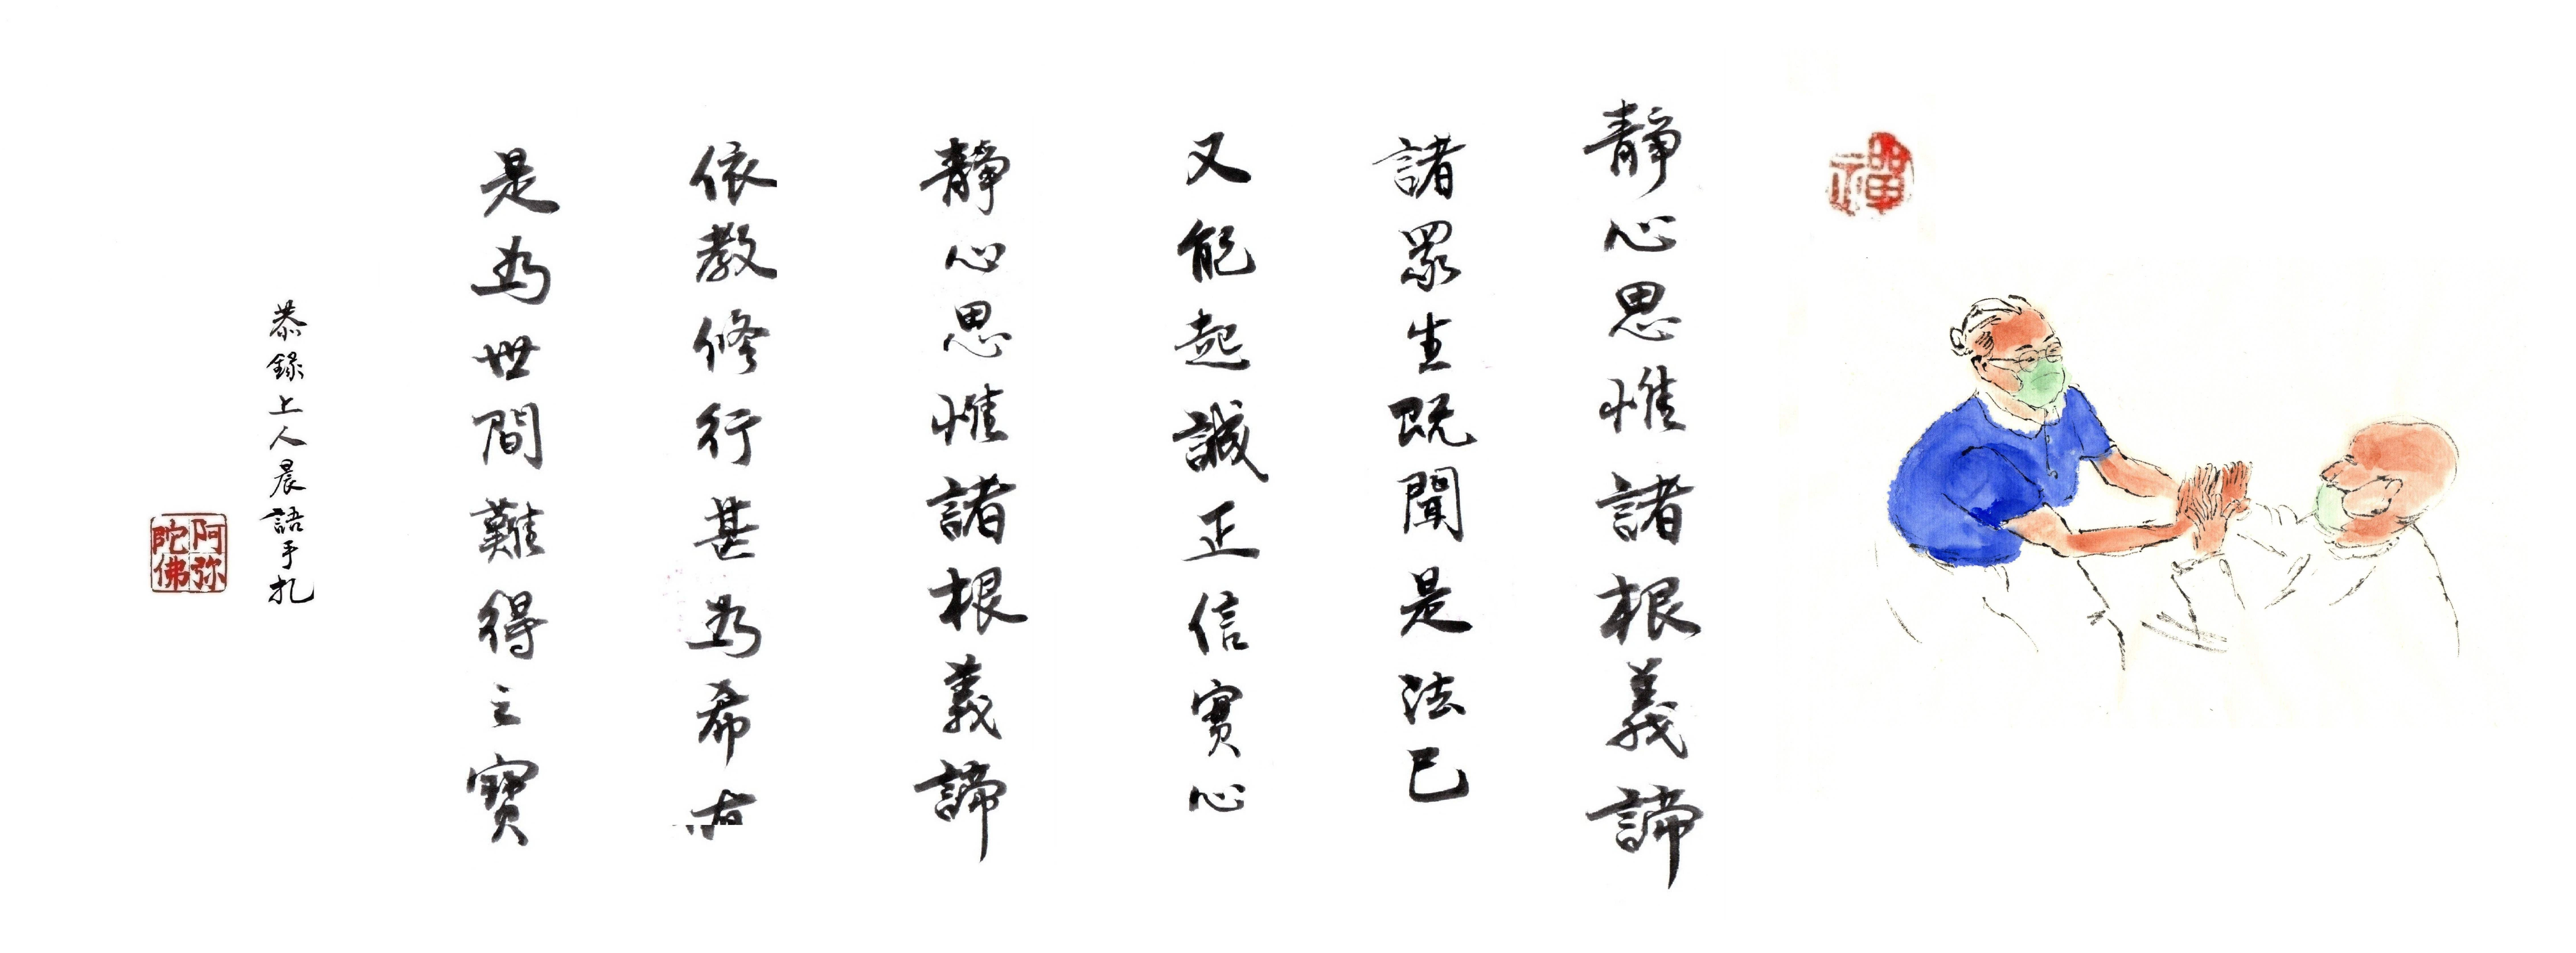 禪
靜心思惟諸根義諦
諸眾生既聞是法已
又能起誠正信實心
靜心思惟諸根義諦
依教修行甚為希有
是為世間難得之寶
恭錄上人晨語手札
阿弥陀佛